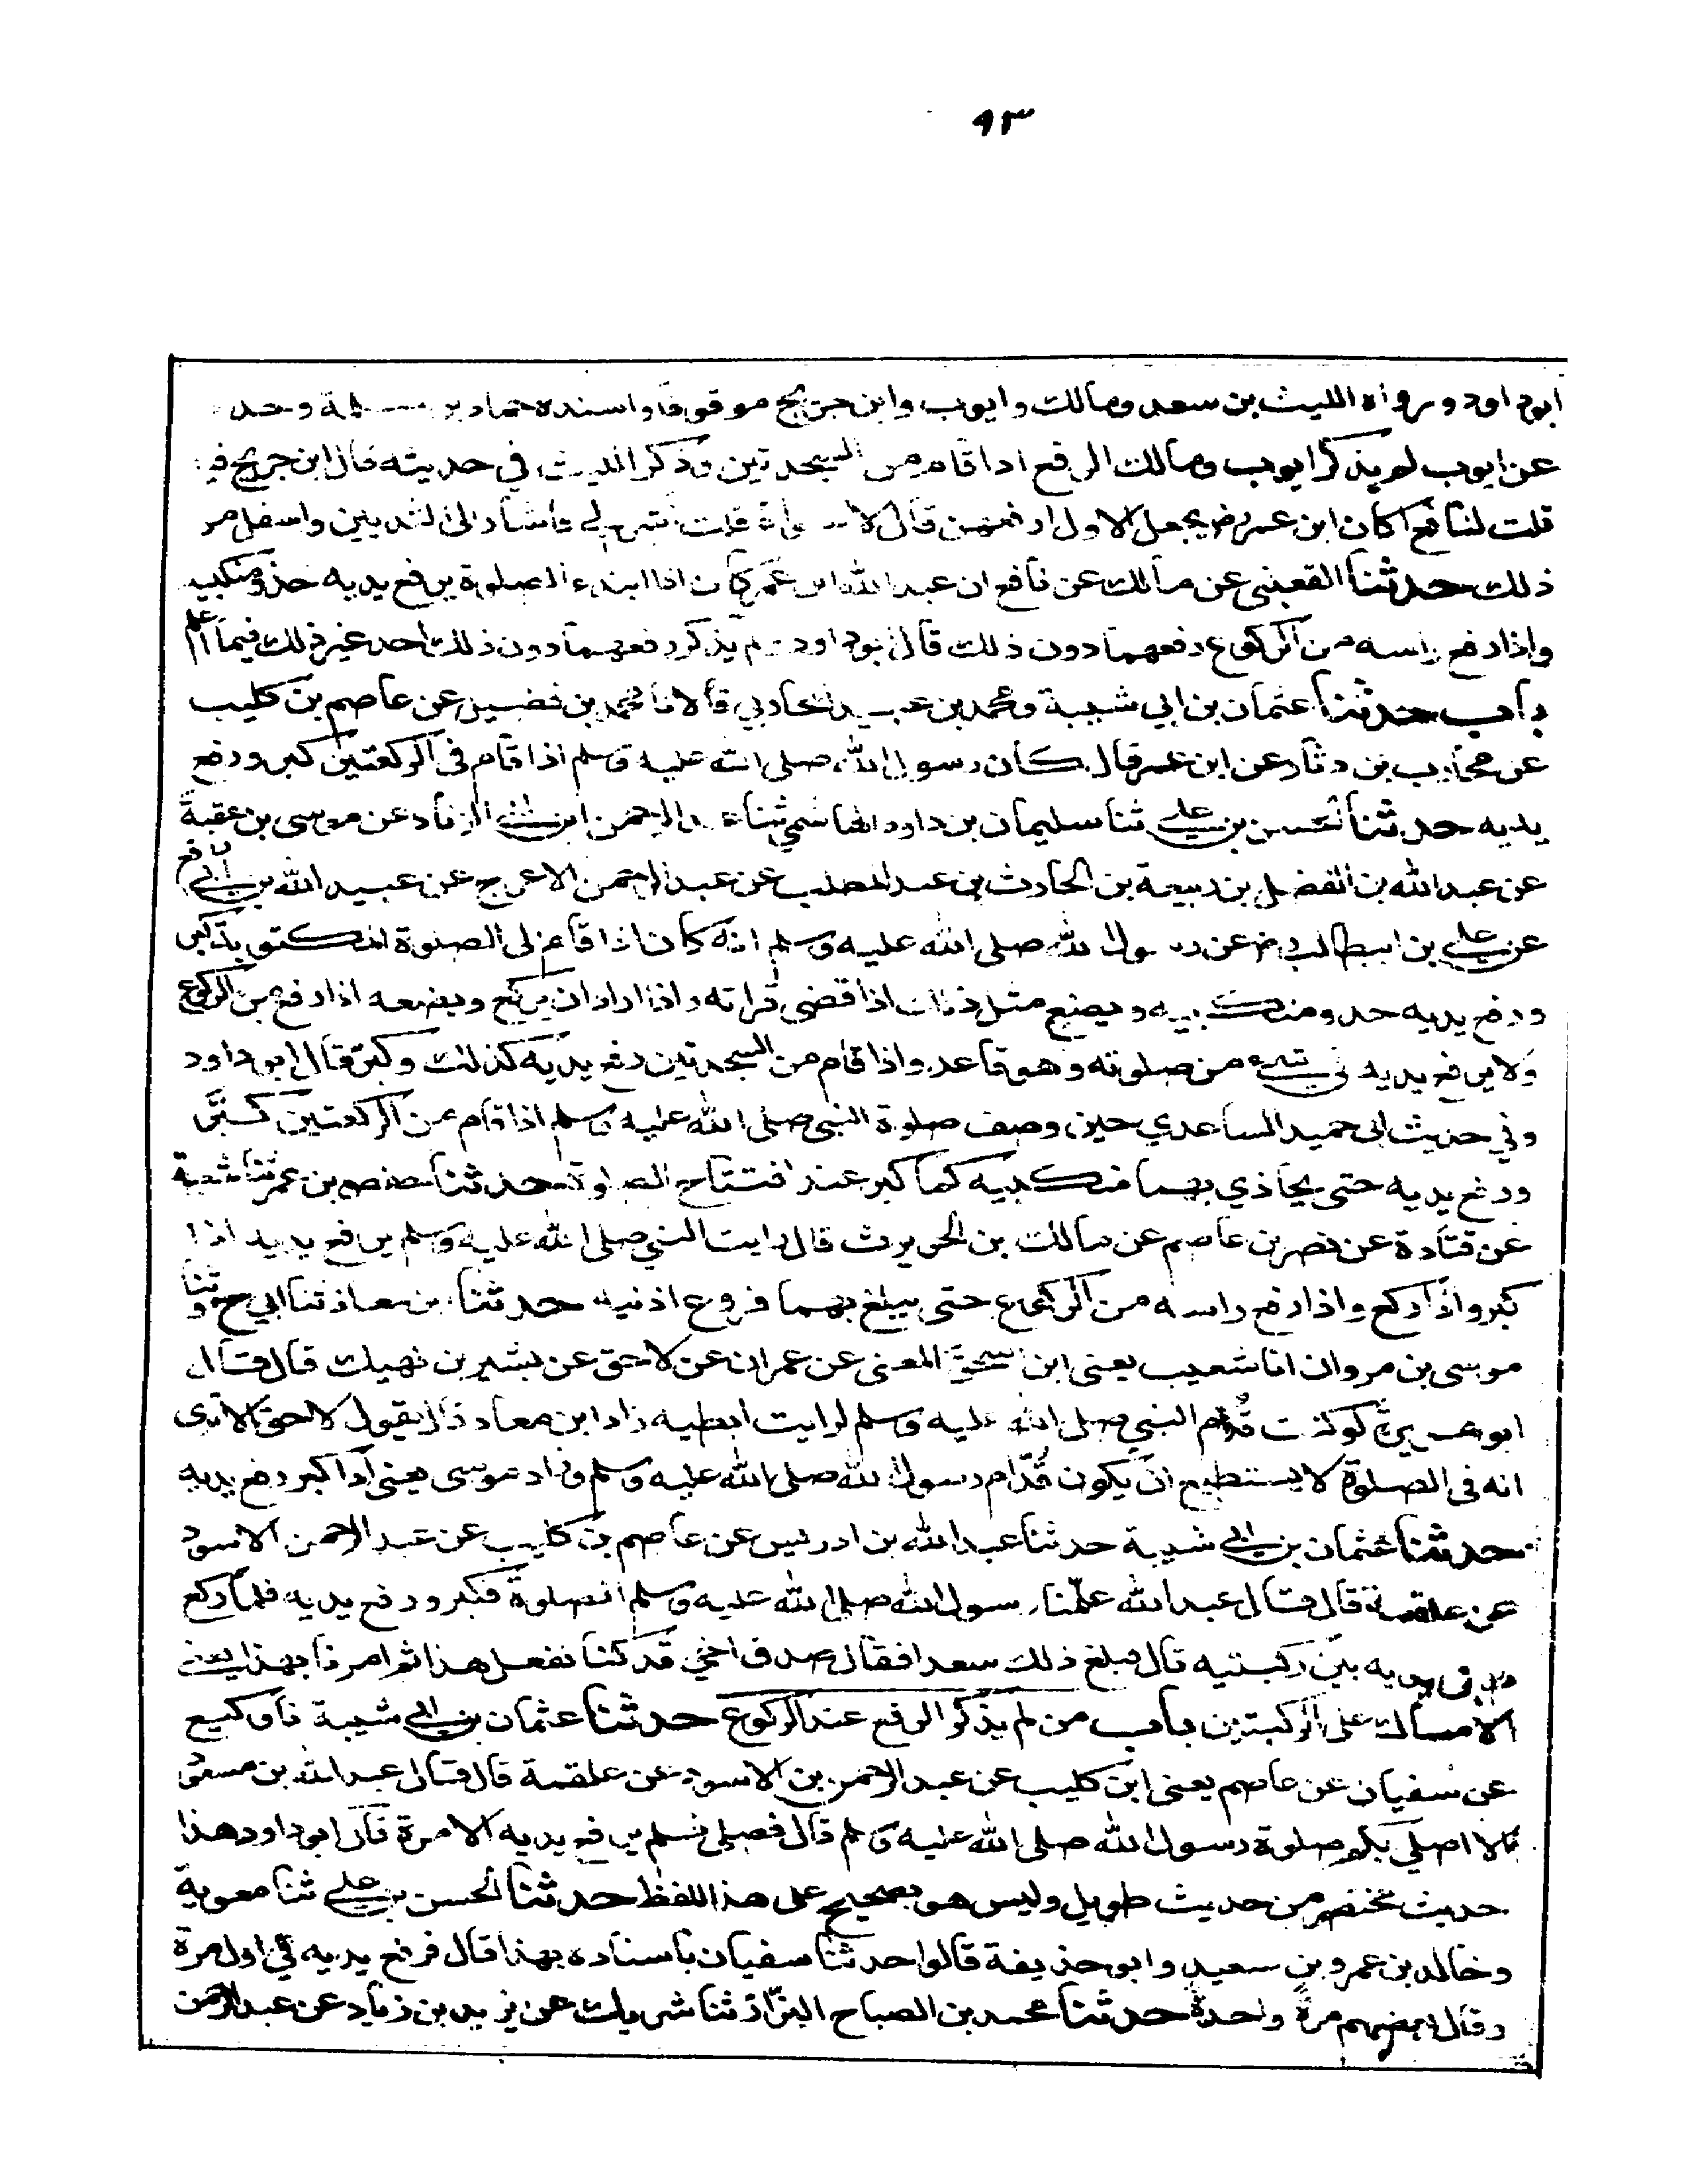 ٩٣
ابوداود ورواه الليث بن سعد ومالك وايوب وابن جريج موقوفا واسنده حماد بن سلمة وحده
عن ايوب لم يذكر ايوب ومالك الرفع اذا قام من السجدتين وذكر الليث في حديثه قال ابن جريج فيه
قلت لنافع اكان ابن عمر رض يجعل الاولى ارفعهن قال لا سواء قلت اشر لي فاشار الى الثديين واسفل من
ذلك حدثنا القعنبي عن مالك عن نافع ان عبدالله ابن عمر كان اذا ابتدء الصلوة يرفع يديه حذو منكبيه
واذا رفع راسه من الركوع رفعهما دون ذلك قال ابوداود لم يذكر رفعهما دون ذلك احد غير ذلك فيما اعلم
باب حدثنا عثمان بن ابي شيبة ومحمد بن عبيد المحاربي قالا نا محمد بن فضيل عن عاصم بن كليب
عن محارب بن دثار عن ابن عمر قال كان رسول الله صلى الله عليه وسلم اذا قام في الركعتين كبر ورفع
يديه حدثنا الحسن بن علي ثنا سليمان بن داود الهاشمي ثنا عبد الرحمن ابن ابي الزناد عن موسى بن عقبة
عن عبدالله بن الفضل بن ربيعة بن الحارث بن عبد المطلب عن عبد الرحمن الاعرج عن عبيد الله بن ابي رافع
عن علي بن ابيطالب رض عن رسول الله صلى الله عليه وسلم انه كان اذا قام الى الصلوة المكتوبة كبر
ورفع يديه حذو منكبيه ويصنع مثل ذلك اذا قضى قراته واذا اراد ان يركع ويضعه اذا رفع من الركوع
ولا يرفع يديه في شيء من صلوته وهو قاعد واذا قام من السجدتين رفع يديه كذلك وكبر قال ابوداود
وفي حديث ابي حميد الساعدي حين وصف صلوة النبي صلى الله عليه وسلم اذا قام من الركعتين كبّر
ورفع يديه حتى يحاذي بهما منكبيه كما كبر عند افتتاح الصلوة حدثنا حفص بن عمر ثنا شعبة
عن قتادة عن نصر بن عاصم عن مالك بن الحويرث قال رايت النبي صلى الله عليه وسلم يرفع يديه اذا
كبر واذا ركع واذا رفع راسه من الركوع حتى يبلغ بهما فروع اذنيه حدثنا ابن معاذ ثنا ابي ح وثنا
موسى بن مروان انا شعيب يعني ابن اسحق المعنى عن عمران عن لاحق عن بشير بن نهيك قال قال
ابو هريرة لو كنت قدام النبي صلى الله عليه وسلم لرايت ابطيه زاد ابن معاذ قال يقول لاحق الا ترى
انه في الصلوة لا يستطيع ان يكون قدّام رسول الله صلى الله عليه وسلم وزاد موسى يعني اذا كبر رفع يديه
حدثنا عثمان بن ابي شيبة حدثنا عبدالله بن ادريس عن عاصم بن كليب عن عبد الرحمن الاسود
عن علقمة قال قال عبدالله علّمنا رسول الله صلى الله عليه وسلم الصلوة فكبر ورفع يديه فلما ركع
طبق يديه بين ركبتيه قال فبلغ ذلك سعدا فقال صدق اخي قد كنا نفعل هذا ثم امرنا بهذا يعني
الامساك على الركبتين باب من لم يذكر الرفع عند الركوع حدثنا عثمان بن ابي شيبة نا وكيع
عن سفيان عن عاصم يعني ابن كليب عن عبد الرحمن بن الاسود عن علقمة قال قال عبدالله بن مسعود
الا اصلي بكم صلوة رسول الله صلى الله عليه وسلم قال فصلى فلم يرفع يديه الا مرة قال ابوداود هذا
حديث مختصر من حديث طويل وليس هو بصحيح على هذا اللفظ حدثنا الحسن بن علي ثنا معوية
وخالد بن عمرو بن سعيد وابو حذيفة قالوا حدثنا سفيان باسناده بهذا قال فرفع يديه في اول مرة
وقال بعضهم مرة واحدة حدثنا محمد بن الصباح البزّاز ثنا شريك عن يزيد بن زياد عن عبد الرحمن